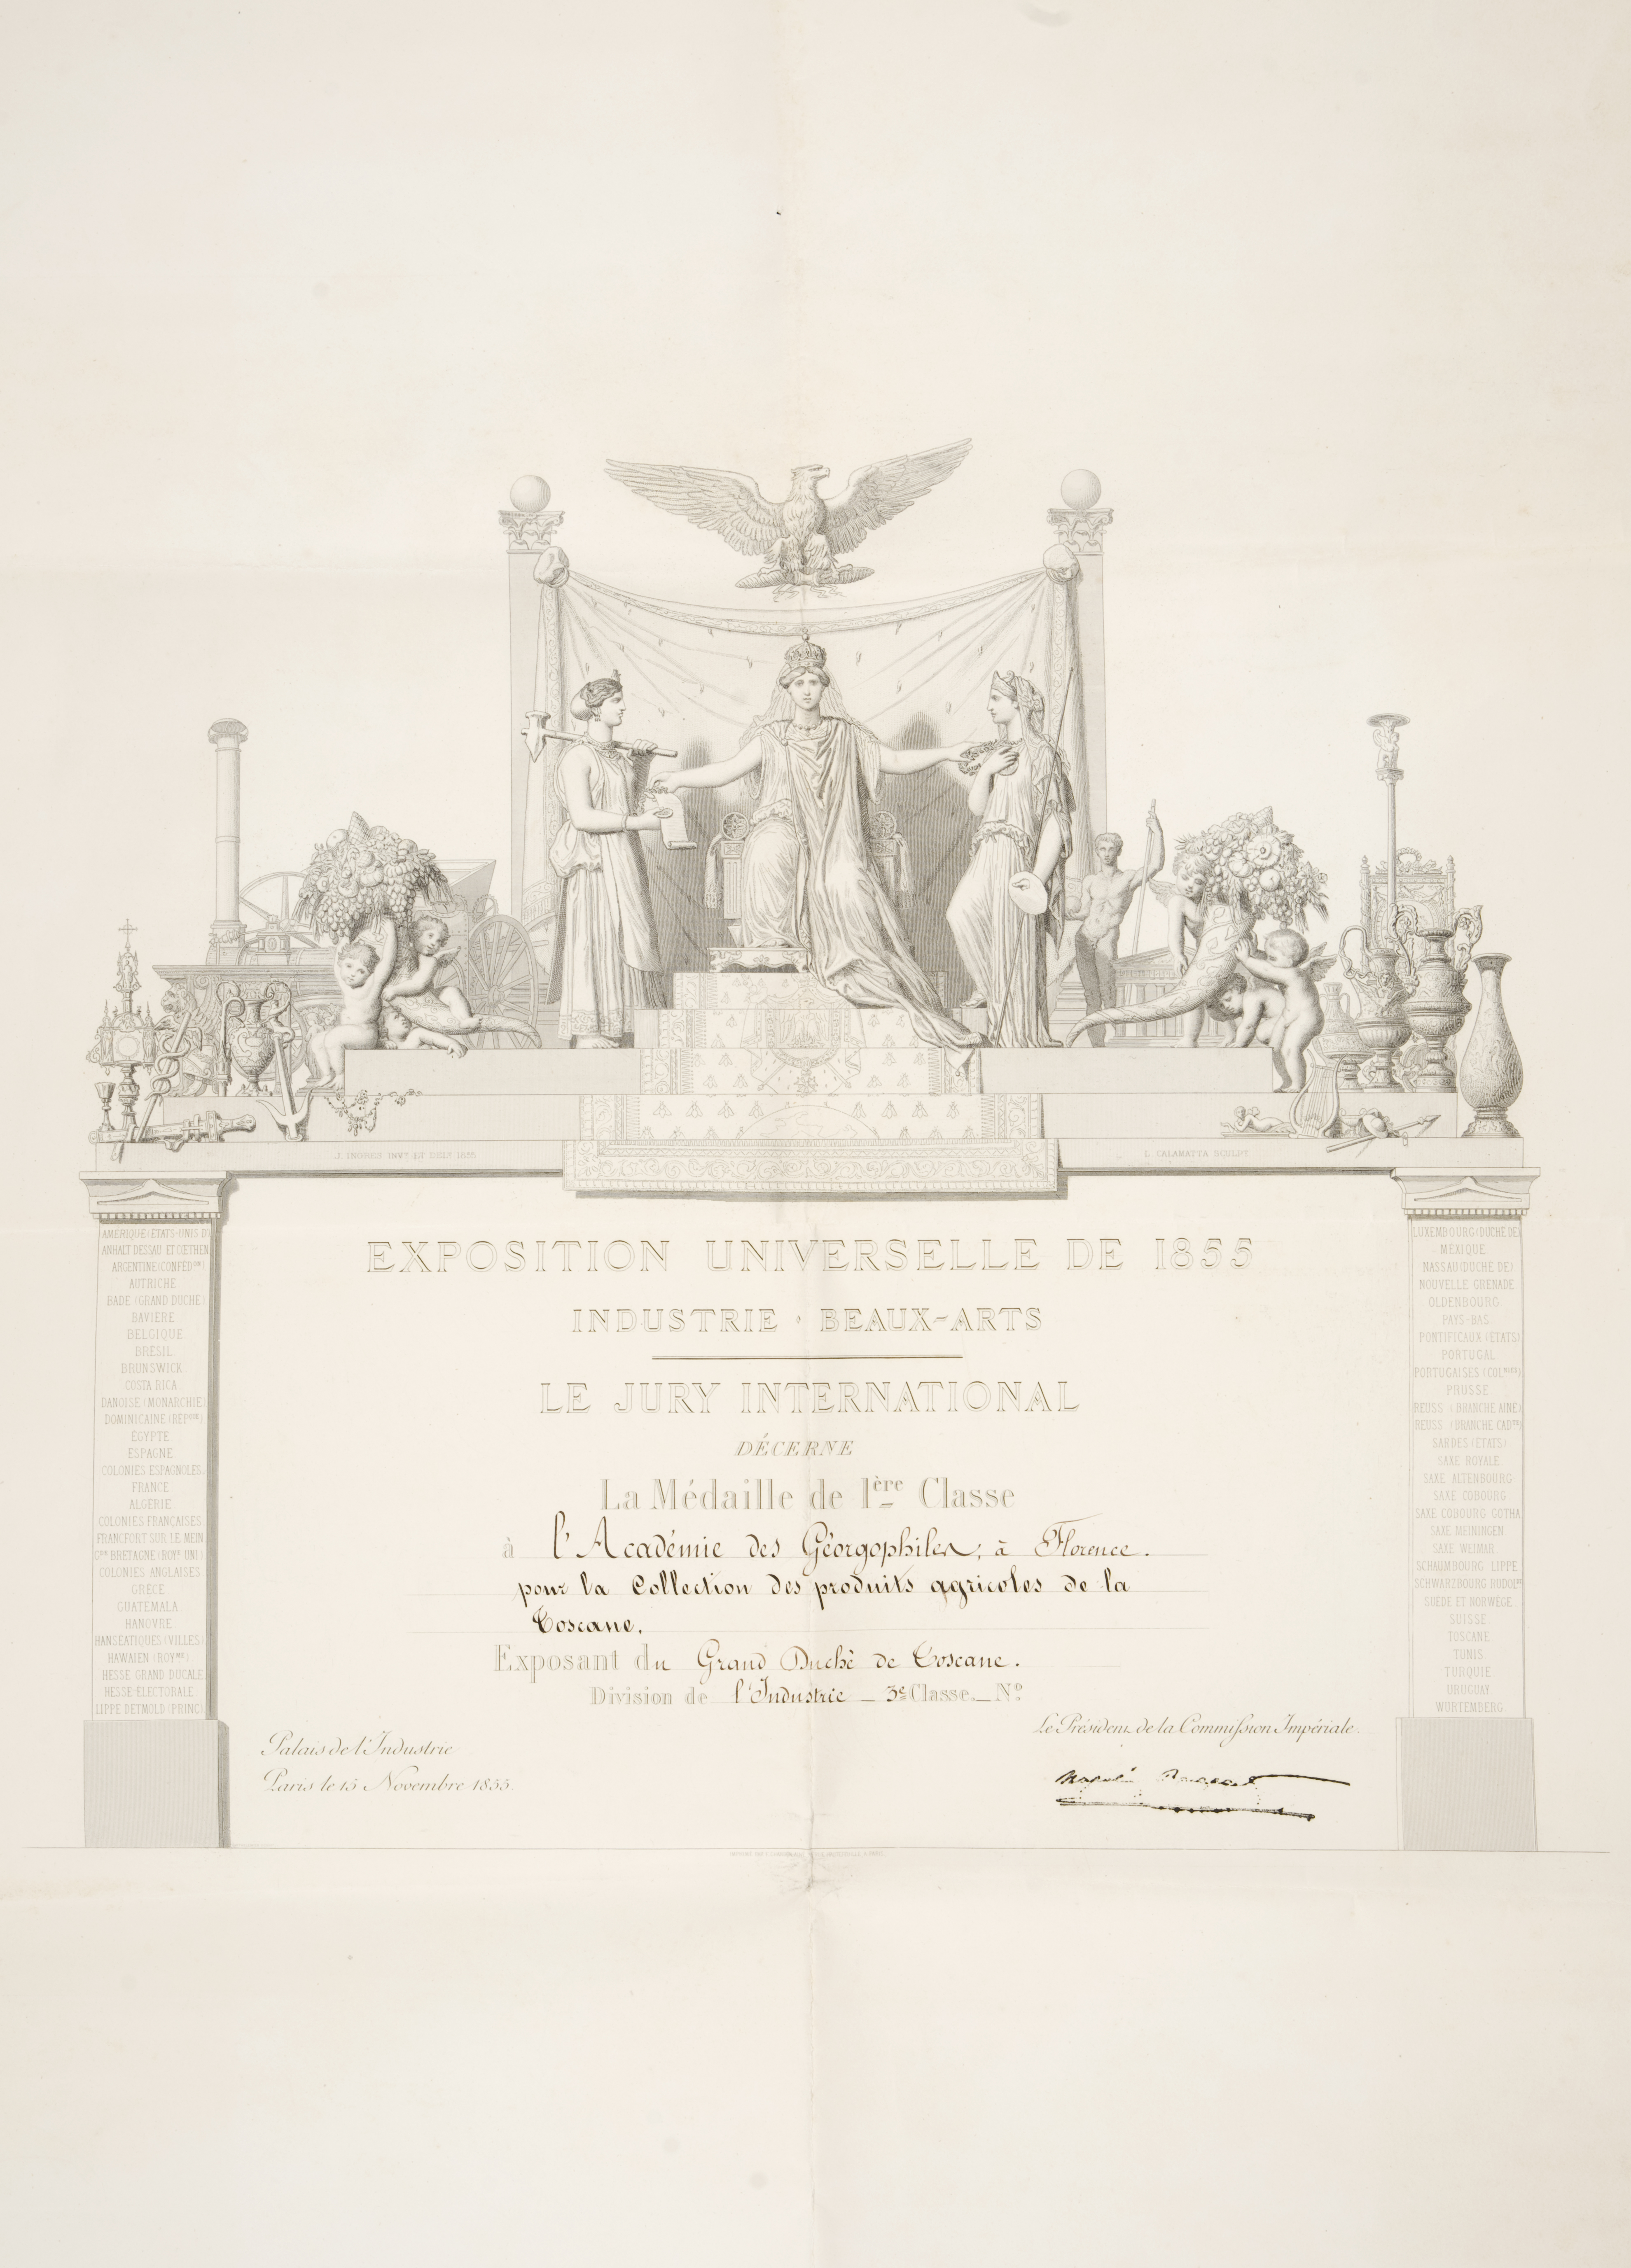 J. INGRES INVT ET DELT 1855
L. CALAMATTA SCULPT
EXPOSITION UNIVERSELLE DE 1855
INDUSTRIE · BEAUX-ARTS
LE JURY INTERNATIONAL
DÉCERNE
La Médaille de 1ère Classe
à l'Académie des Géorgophiles, à Florence.
pour la Collection des produits agricoles de la
Toscane.
Exposant du Grand Duché de Toscane.
Division de l'Industrie _ 3e Classe. _ No
Palais de l'Industrie
Paris le 15 Novembre 1855.
Le Président de la Commission Impériale.
AMERIQUE (ETATS-UNIS D')
ANHALT DESSAU ET CŒTHEN
ARGENTINE (CONFEDON)
AUTRICHE
BADE (GRAND DUCHE)
BAVIERE
BELGIQUE
BRESIL
BRUNSWICK
COSTA RICA
DANOISE (MONARCHIE)
DOMINICAINE (REPIQUE)
EGYPTE
ESPAGNE
COLONIES ESPAGNOLES
FRANCE
ALGERIE
COLONIES FRANÇAISES
FRANCFORT SUR LE MEIN
GDE BRETAGNE (ROYE UNI)
COLONIES ANGLAISES
GRECE
GUATEMALA
HANOVRE
HANSEATIQUES (VILLES)
HAWAIEN (ROYME)
HESSE GRAND DUCALE
HESSE-ELECTORALE
LIPPE DETMOLD (PRINC)
LUXEMBOURG (DUCHE DE)
MEXIQUE
NASSAU (DUCHE DE)
NOUVELLE GRENADE
OLDENBOURG
PAYS-BAS
PONTIFICAUX (ETATS)
PORTUGAL
PORTUGAISES (COLNIES)
PRUSSE
REUSS (BRANCHE AINE)
REUSS (BRANCHE CADTE)
SARDES (ETATS)
SAXE ROYALE
SAXE ALTENBOURG
SAXE COBOURG
SAXE COBOURG GOTHA
SAXE MEININGEN
SAXE WEIMAR
SCHAUMBOURG LIPPE
SCHWARZBOURG RUDOLST
SUEDE ET NORWEGE
SUISSE
TOSCANE
TUNIS
TURQUIE
URUGUAY
WURTEMBERG